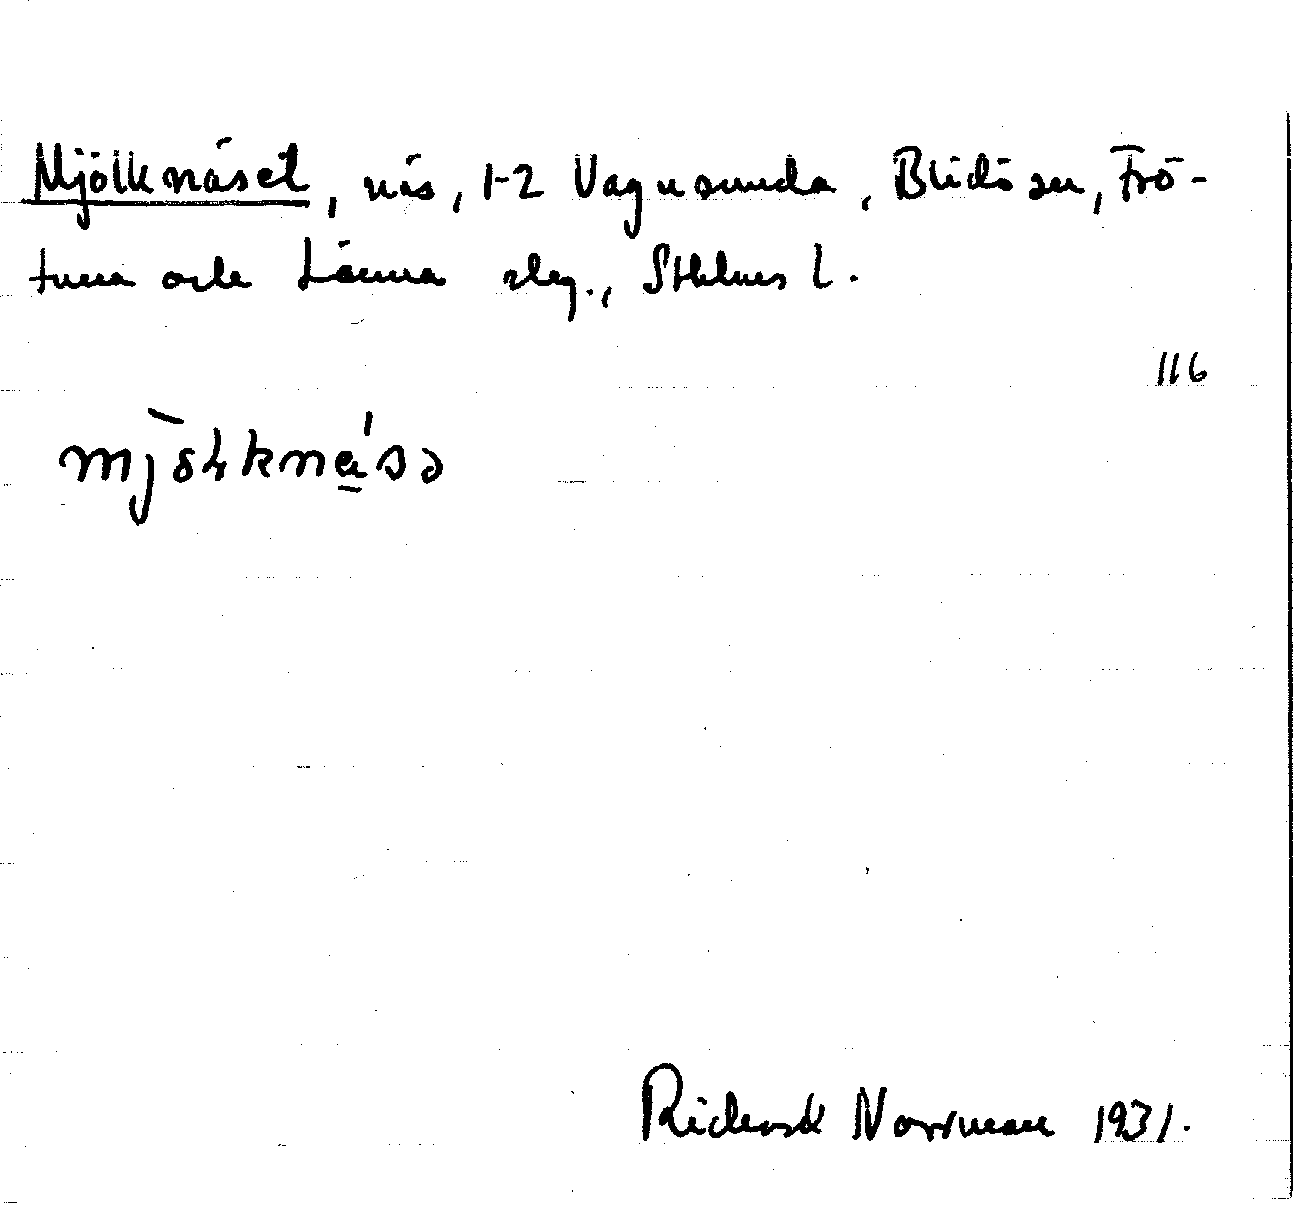 Mjölknäset, näs, 1-2 Vagnsunda, Blidö sn, Frö-
tuna och Länna slg., Sthlms l.
116
Rickard Norrman 1931.